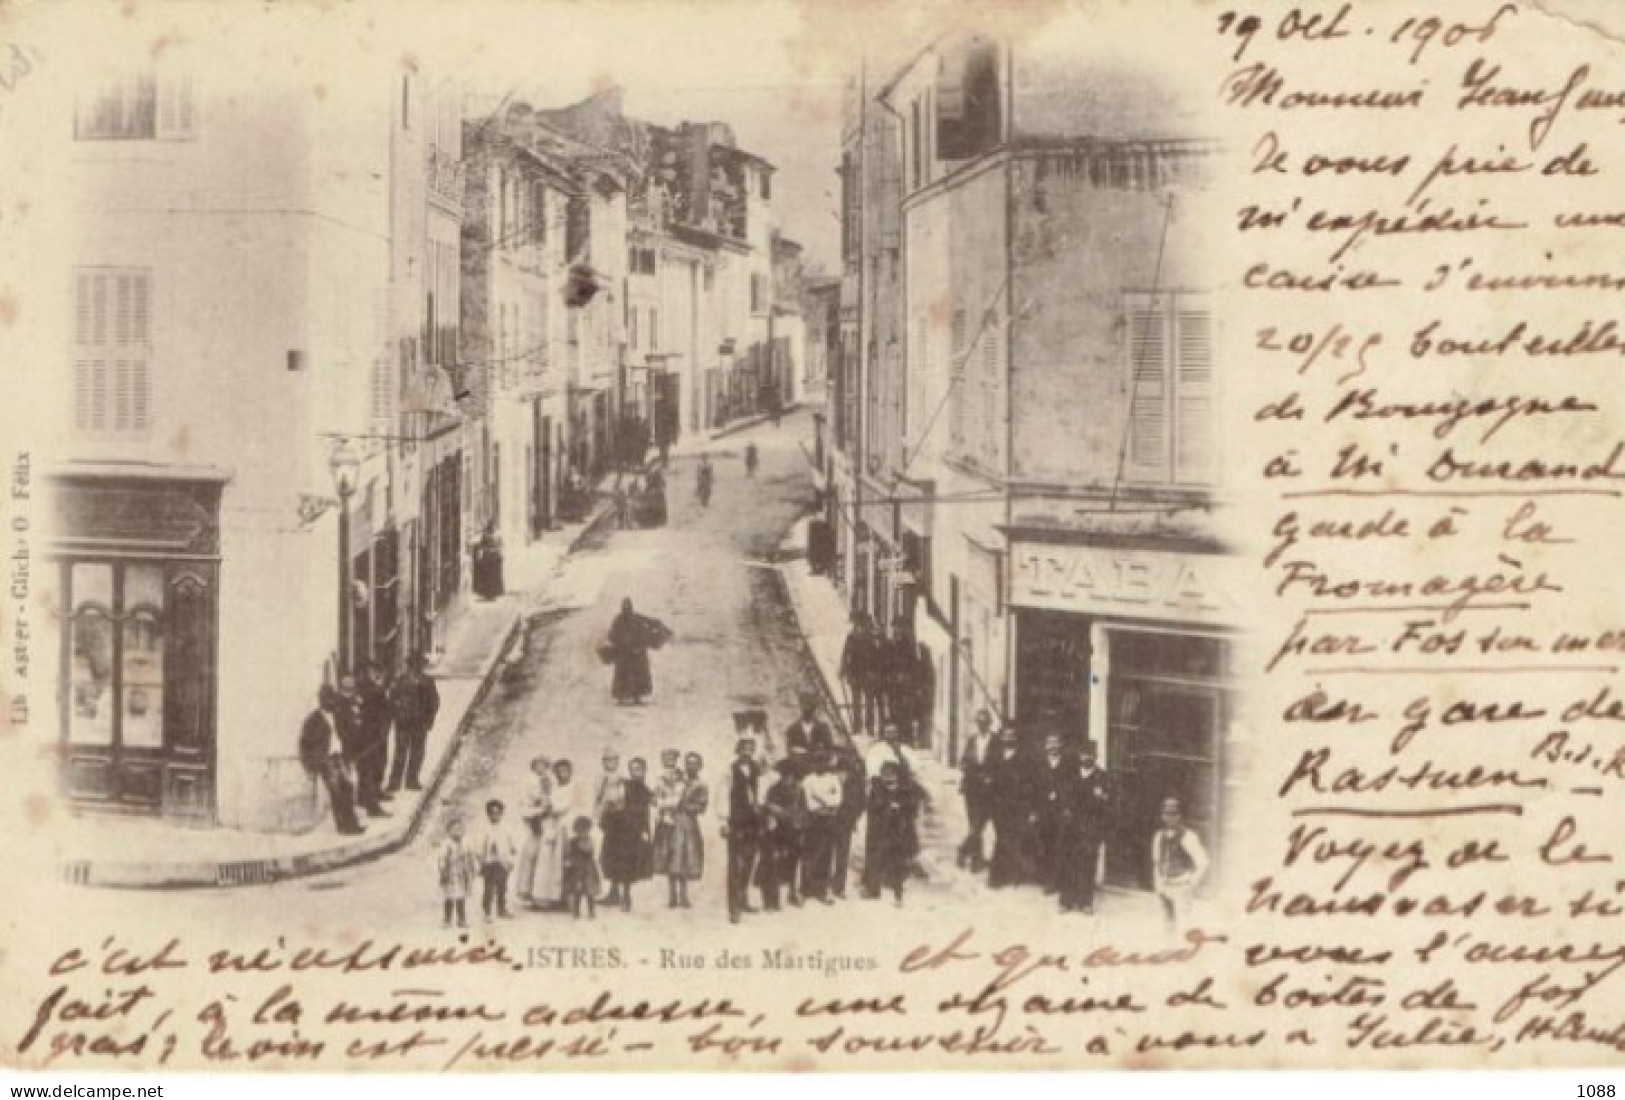 19 Oct. 1906
Monsieur
Je vous prie de
m'expédier une
caisse d'environ
20/25 bouteilles
de Bourgogne
à Mr Durand
garde à la
Fromagère
par Fos sur mer
en gare de
Rassuen B.d.R
Voyez de le
transvaser si
c'est nécessaire. ISTRES. - Rue des Martigues et quand vous l'aurez
fait, à la même adresse, une dizaine de boites de foi
gras; le vin est pressé - bon souvenir à vous & Julie,
TABA
Cliché O Félix
delcampe.net
1088